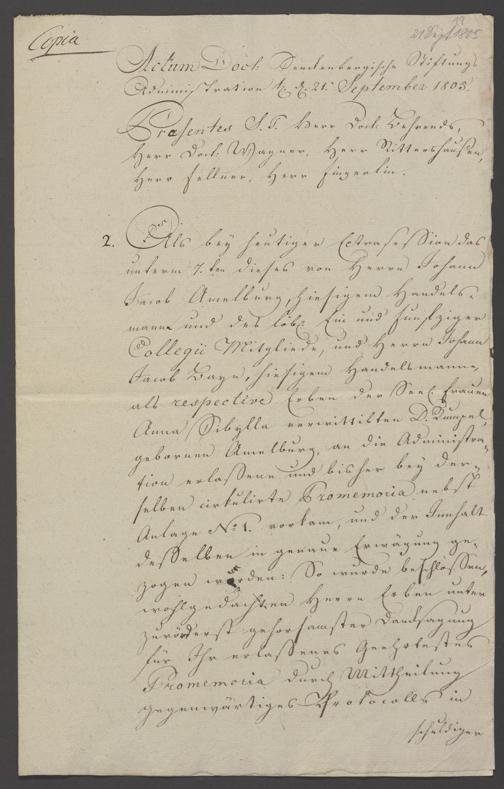 Copia
21 Sept 1805
Actum Doct. Senckenbergische Stiftungs
Administration d. 21. September 1805.
Præsentes S. T. Herr Doct. Behrends,
Herr Doct. Wagner, Herr Rittershausen,
Herr Fellner, Herr Fingerlin.
2. Als bey heutiger Extrasession das
unterm 7.ten dieses von Herrn Johann
Jacob Amelburg, hiesigem Handels-
manne und des löbl. Ein und funfziger
Collegii Mitgliede, und Herrn Johann
Jacob Bayn, hiesigem Handelsmanne,
als respective Erben der Seel. Frauen
Anna Sibylla verwittibten D. Rumpel,
gebornen Amelburg, an die Administra-
tion erlassene und bisher bey der-
selben cirkulirte Promemoria nebst
Anlage No. 1. vorkam, und der Innhalt
desselben in genaue Erwägung ge-
zogen worden: So wurde beschlossen,
wohlgedachten Herrn Erben unter
zuvörderst gehorsamster Danksagung
für Ihr erlassenes Geehrtestes
Promemoria durch Mittheilung
gegenwärtiges Protocolls in
schuldiger